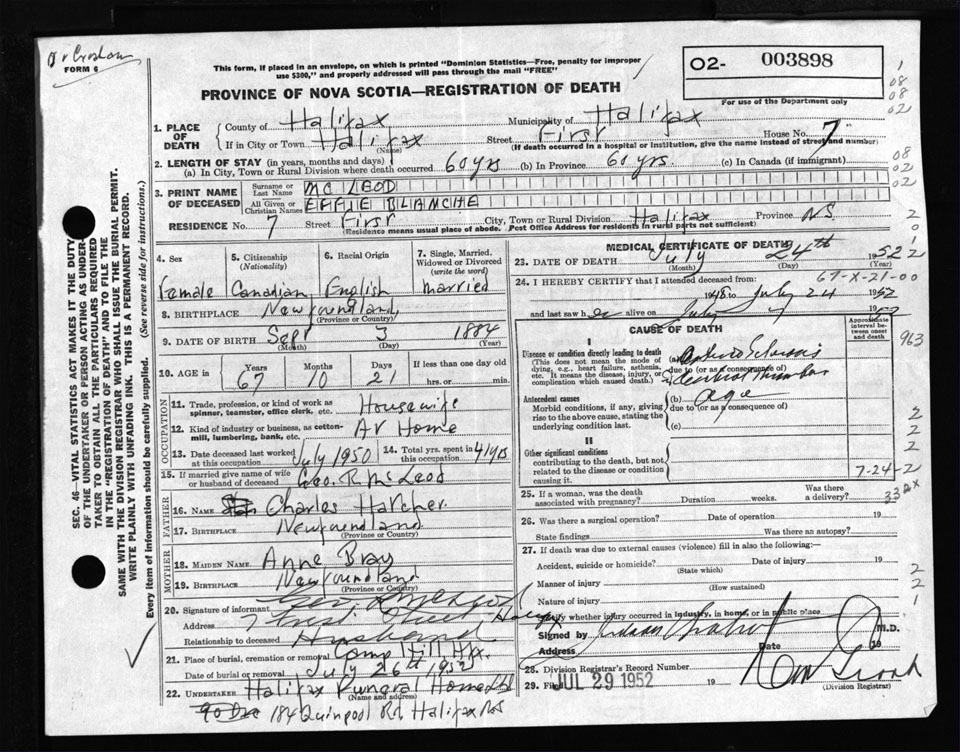 FORM 6
This form, if placed in an envelope, on which is printed "Dominion Statistics—Free, penalty for improper
use $300," and properly addressed will pass through the mail "FREE"
O2- 003898
For use of the Department only
PROVINCE OF NOVA SCOTIA—REGISTRATION OF DEATH
1. PLACE OF DEATH
County of Halifax Municipality of Halifax
If in City or Town Halifax Street First House No. 7
(Name) (If death occurred in a hospital or institution, give the name instead of street and number)
2. LENGTH OF STAY (in years, months and days)
(a) In City, Town or Rural Division where death occurred 60 yrs (b) In Province 60 yrs. (c) In Canada (if immigrant)
3. PRINT NAME OF DECEASED
Surname or Last Name MC LEOD
All Given or Christian Names EFFIE BLANCHE
RESIDENCE No. 7 Street First City, Town or Rural Division Halifax Province N.S.
(Residence means usual place of abode. Post Office Address for residents in rural parts not sufficient)
4. Sex
Female
5. Citizenship (Nationality)
Canadian
6. Racial Origin
English
7. Single, Married, Widowed or Divorced (write the word)
Married
8. BIRTHPLACE Newfoundland
(Province or Country)
9. DATE OF BIRTH Sept 3 1884
(Month) (Day) (Year)
10. AGE in Years Months Days If less than one day old
67 10 21 hrs. or min.
OCCUPATION
11. Trade, profession, or kind of work as spinner, teamster, office clerk, etc. Housewife
12. Kind of industry or business, as cotton-mill, lumbering, bank, etc. At Home
13. Date deceased last worked at this occupation July 1950 14. Total yrs. spent in this occupation 41 yrs
15. If married give name of wife or husband of deceased Geo. R. McLeod
FATHER
16. NAME Charles Hatcher
17. BIRTHPLACE Newfoundland
MOTHER
18. MAIDEN NAME Anne Bray
19. BIRTHPLACE Newfoundland
(Province or Country)
20. Signature of informant
Address 7 First Street
Relationship to deceased Husband
21. Place of burial, cremation or removal Camp Hill Hfx.
Date of burial or removal July 26th 1952
22. UNDERTAKER Halifax Funeral Home Ltd
(Name and address)
184 Quinpool Rd Halifax NS
MEDICAL CERTIFICATE OF DEATH
23. DATE OF DEATH July 24th 1952
(Month) (Day) (Year)
67-X-21-00
24. I HEREBY CERTIFY that I attended deceased from:
1948 to July 24 1952
and last saw her alive on July 19
CAUSE OF DEATH
Approximate interval between onset and death
I
Disease or condition directly leading to death (a)
(This does not mean the mode of dying, e.g., heart failure, asthenia, etc. It means the disease, injury, or complication which caused death.)
due to (or as a consequence of)
Antecedent causes (b) age
Morbid conditions, if any, giving rise to the above cause, stating the underlying condition last.
due to (or as a consequence of)
(c)
II
Other significant conditions
contributing to the death, but not related to the disease or condition causing it.
7-24-2
25. If a woman, was the death associated with pregnancy? Duration weeks. Was there a delivery?
26. Was there a surgical operation? Date of operation 19
State findings Was there an autopsy?
27. If death was due to external causes (violence) fill in also the following:—
Accident, suicide or homicide? Date of injury 19
(State which)
Manner of injury
(How sustained)
Nature of injury
Specify whether injury occurred in industry, in home, or in public place
Signed by M.D.
Address Date 19
28. Division Registrar's Record Number
29. Filed JUL 29 1952 19
(Division Registrar)
SEC. 46—VITAL STATISTICS ACT MAKES IT THE DUTY
OF THE UNDERTAKER OR PERSON ACTING AS UNDER-
TAKER TO OBTAIN ALL THE PARTICULARS REQUIRED
IN THE "REGISTRATION OF DEATH" AND TO FILE THE
SAME WITH THE DIVISION REGISTRAR WHO SHALL ISSUE THE BURIAL PERMIT.
WRITE PLAINLY WITH UNFADING INK. THIS IS A PERMANENT RECORD.
Every item of information should be carefully supplied. (See reverse side for instructions.)